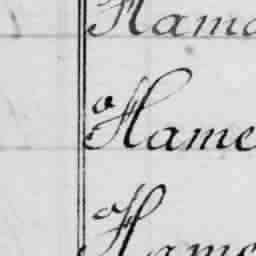 Hame
Hame
Hame